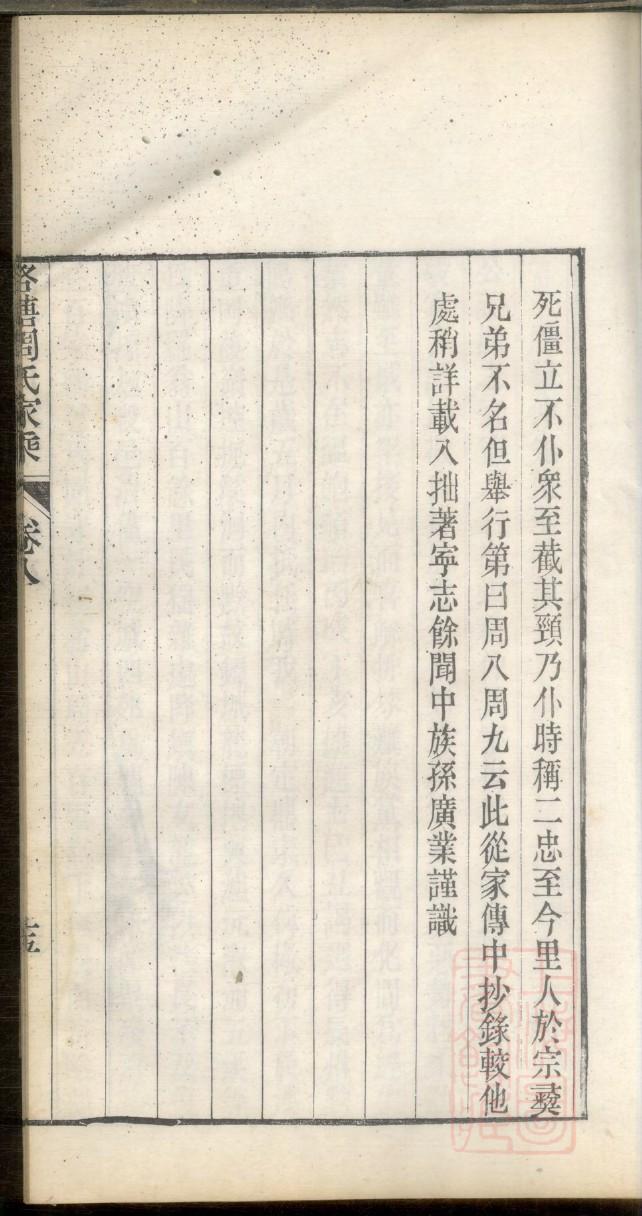 死僵立不仆衆至截其頸乃仆時稱二忠至今里人於宗彝
兄弟不名但舉行第曰周八周九云此從家傳中抄錄較他
處稍詳載入拙著寧志餘聞中族孫廣業謹識
洛塘周氏家乘
卷八